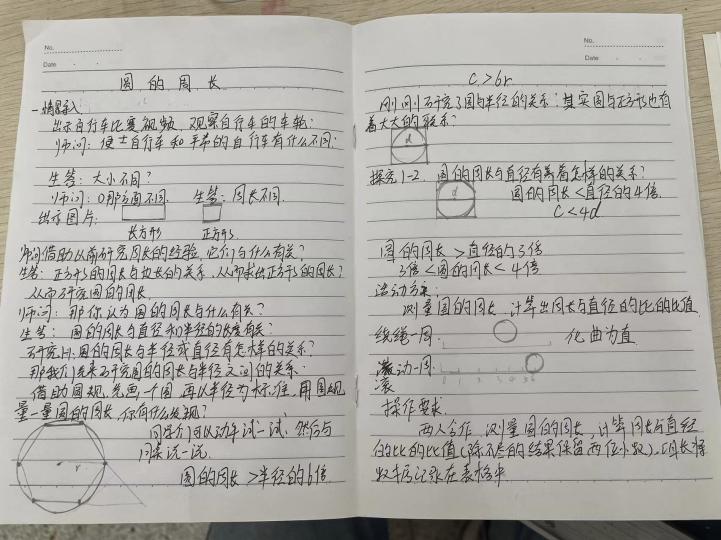 No.
Date
圆的周长
一情景导入:
出示自行车比赛视频,观察自行车的车轮:
师问:使
自行车和平常的自行车有什么不同:
生答:大小不同?
师问:
面不同. 生答:周长不同.
出示图片:
长方形 正方形
师问借助以前研究周长的经验,它们与什么有关?
生答:正方形的周长与边长的关系,从而求出正方形的周长?
从而研究圆的周长.
师问:那你认为圆的周长与什么有关?
生答:圆的周长与直径和半径的长度有关?
研究1-1:圆的周长与半径或直径有怎样的关系?
那我们先来研究圆的周长与半径之间的关系.
借助圆规,先画一个圆,再以半径为标准,用圆规
量一量圆的周长,你有什么发现?
同学们可以动手试一试,然后与
同桌说一说.
r
圆的周长>半径的6倍
No.
Date
C>6r
刚刚研究了圆与半径的关系:其实圆与正方形也有
着大大的联系?
d
探究1-2. 圆的周长与直径有着怎样的关系?
d
圆的周长<直径的4倍.
C<4d
圆的周长>直径的3倍
3倍<圆的周长<4倍
活动方案:
测量圆的周长,计算出周长与直径的比的比值
绕绳一周: 化曲为直.
滚动一周:
0 1 2 3 4 5 6
滚
操作要求
两人合作,测量圆的周长,计算周长与直径
的比的比值(除不尽的结果保留两位小数).组长将
数据记录在表格中